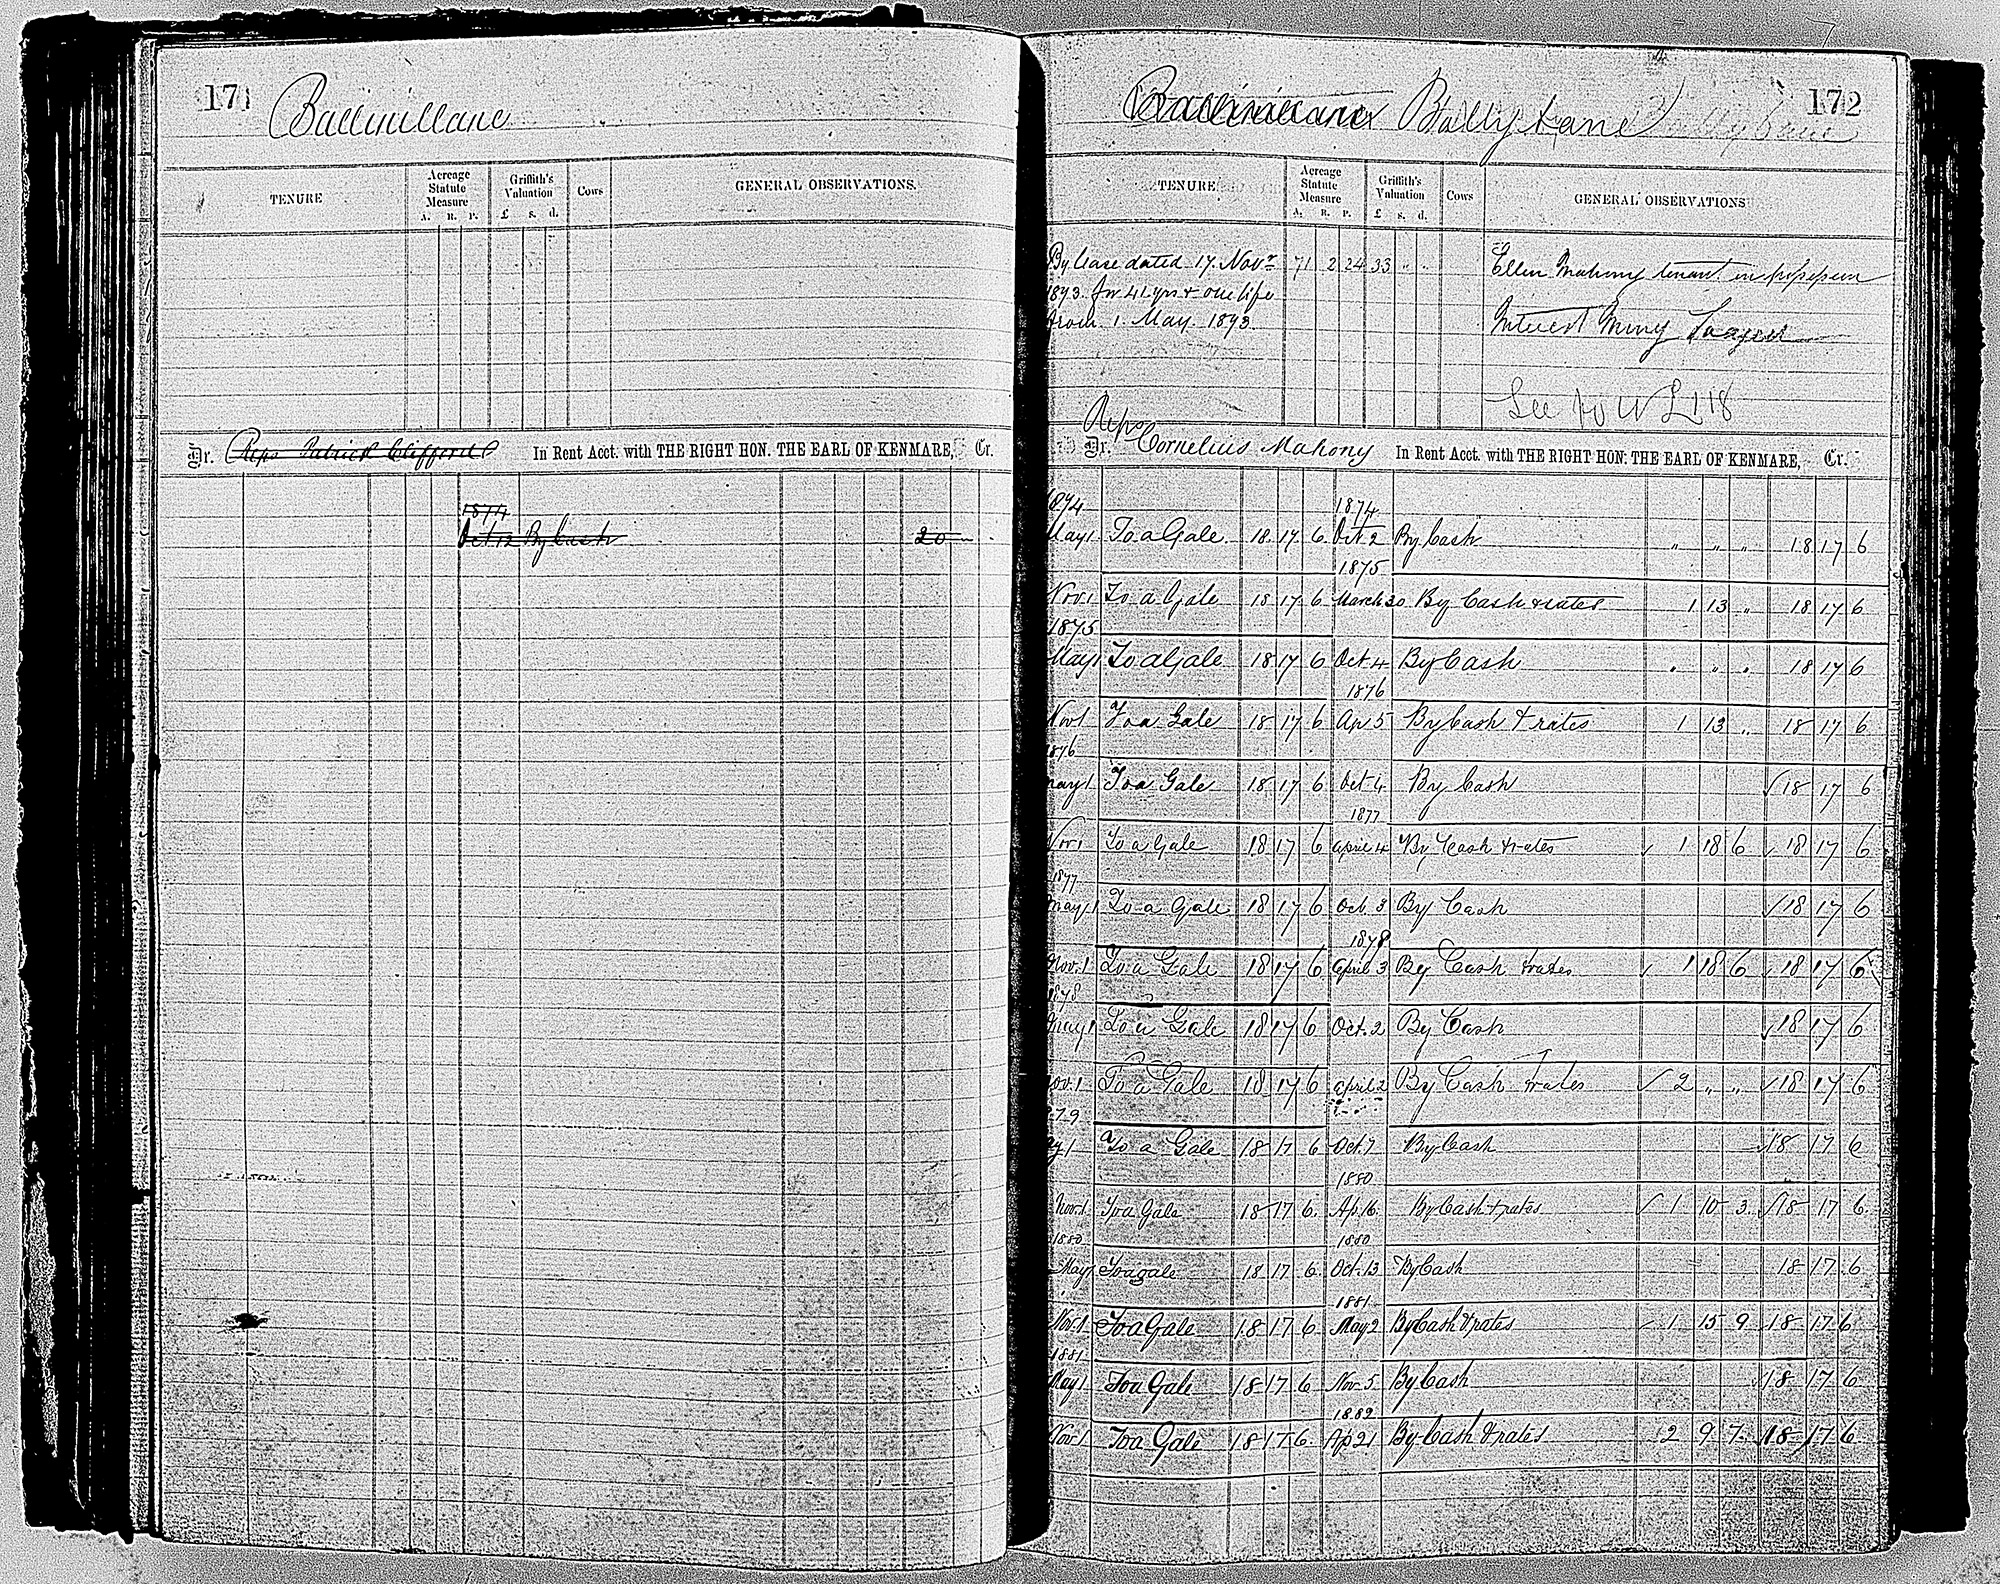 171
Ballinillane
TENURE
Acreage Statute Measure
A. R. P.
Griffith's Valuation
£ s. d.
Cows
GENERAL OBSERVATIONS.
Dr. Reps Patrick Clifford In Rent Acct. with THE RIGHT HON. THE EARL OF KENMARE, Cr.
1874
Oct 12 By Cash 20
172
Ballinillane Bally Lane
TENURE
Acreage Statute Measure
A. R. P.
Griffith's Valuation
£ s. d.
Cows
GENERAL OBSERVATIONS
By lease dated 17. Novr 71 2 24 33 " " Ellen Mahony tenant in
1873. for 41 yrs & one life
from 1. May. 1873.
See £118
Reps
Dr. Cornelius Mahony In Rent Acct. with THE RIGHT HON: THE EARL OF KENMARE, Cr.
1874 1874
May 1 To a Gale 18 17 6 Oct 2 By Cash " " " 18 17 6
1875
Nov. 1 To a Gale 18 17 6 March 30 By Cash & rates 1 13 " 18 17 6
1875
May 1 To a Gale 18 17 6 Oct. 4 By Cash " " " 18 17 6
1876
Nov 1 To a Gale 18 17 6 Ap 5 By Cash & rates 1 13 " 18 17 6
1876
May 1 To a Gale 18 17 6 Oct 4 By Cash √ 18 17 6
1877
Nov 1 To a Gale 18 17 6 April 4 By Cash & rates √ 1 18 6 √ 18 17 6
1877
May 1 To a Gale 18 17 6 Oct. 3 By Cash √ 18 17 6
1878
Nov. 1 To a Gale 18 17 6 April 3 By Cash & rates √ 1 18 6 √ 18 17 6
1878
May 1 To a Gale 18 17 6 Oct. 2 By Cash √ 18 17 6
Nov. 1 To a Gale 18 17 6 April 2 By Cash & rates √ 2 " " √ 18 17 6
1879
May 1 To a Gale 18 17 6 Oct. 7 By Cash √ 18 17 6
1880
Nov. 1 To a Gale 18 17 6 Ap. 16 By Cash & rates √ 1 10 3 √ 18 17 6
1880 1880
May 1 To a gale 18 17 6 Oct. 13 By Cash 18 17 6
1881
Nov. 1 To a Gale 18 17 6 May 2 By Cash & rates √ 1 15 9 18 17 6
1881
May 1 To a Gale 18 17 6 Nov. 5 By Cash √ 18 17 6
1882
Nov 1 To a Gale 18 17 6 Ap 21 By Cash & rates 2 9 7 18 17 6